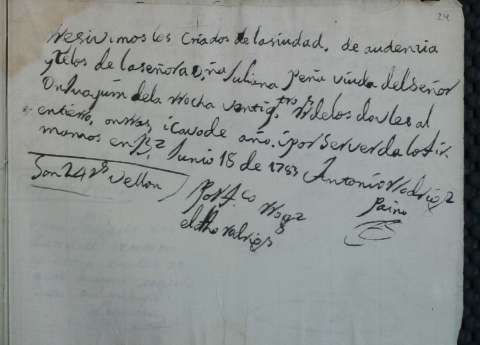 24
Resivimos los Criados de la siudad, de audencia
y telos de la señora Dña Juliana Peña viuda del Señor
Dn Juaquin de la Rocha venti q.tro Rs de los dovles al
entierro, onrras, i Cavo de año. i por ser verda lo fir
mamos en Junio 15 de 1783 Antonio Rodrig.z
Son 24 Rs vellon
Por
Paino